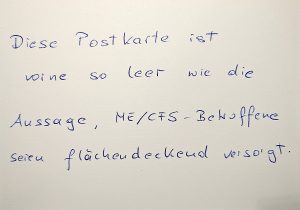 Diese Postkarte ist
voine so leer wie die
Aussage, ME/CFS-Betroffene
seien flächendeckend versorgt.